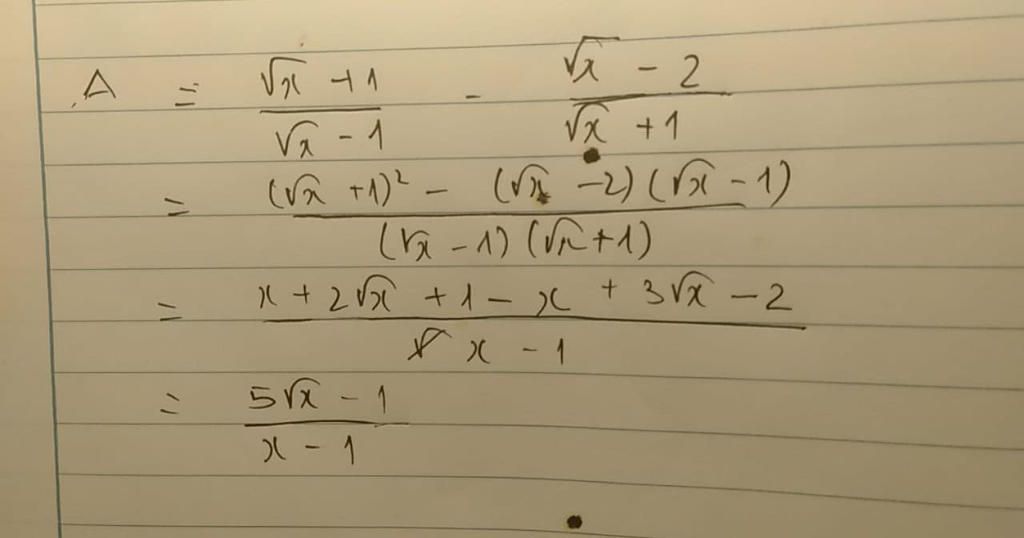 A = (√x + 1)/(√x - 1) - (√x - 2)/(√x + 1)
= ((√x + 1)² - (√x - 2)(√x - 1))/((√x - 1)(√x + 1))
= (x + 2√x + 1 - x + 3√x - 2)/(x - 1)
= (5√x - 1)/(x - 1)